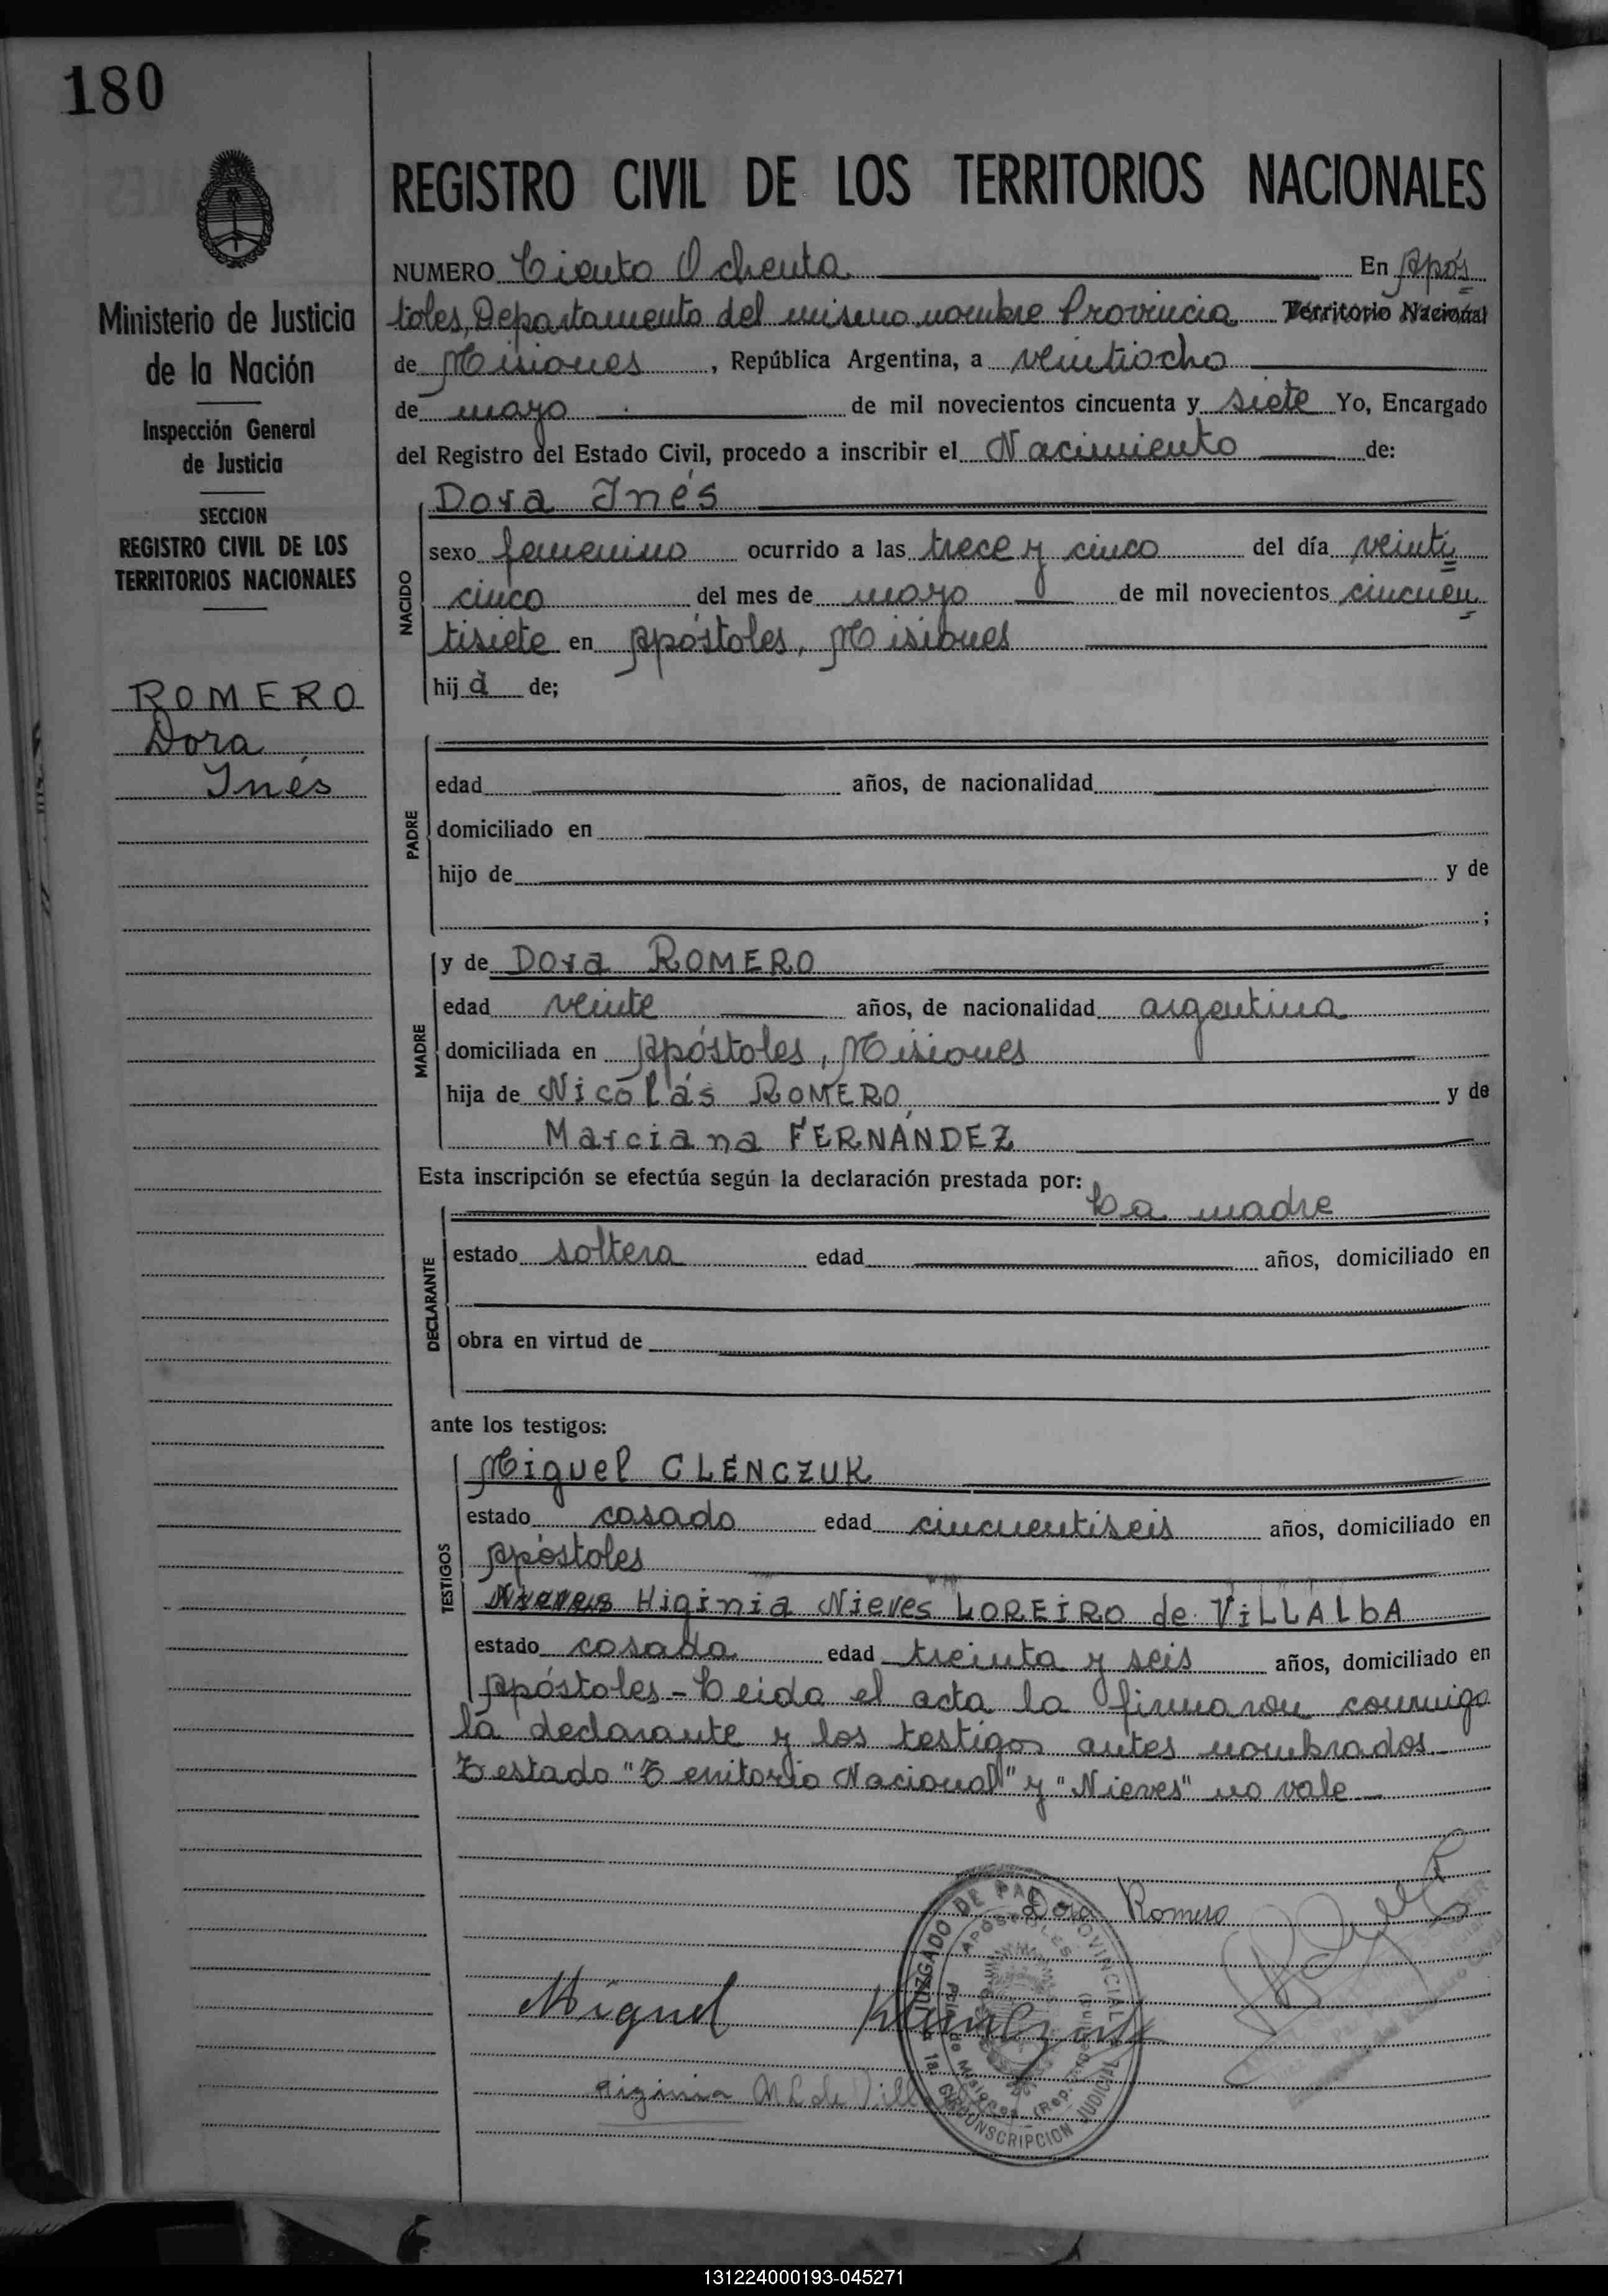 180
Ministerio de Justicia
de la Nación
Inspección General
de Justicia
SECCION
REGISTRO CIVIL DE LOS
TERRITORIOS NACIONALES
ROMERO
Dora
Inés
REGISTRO CIVIL DE LOS TERRITORIOS NACIONALES
NUMERO Ciento Ochenta En Após
toles, Departamento del mismo nombre Provincia Territorio Nacional
de Misiones , República Argentina, a veintiocho
de mayo de mil novecientos cincuenta y siete Yo, Encargado
del Registro del Estado Civil, procedo a inscribir el Nacimiento de:
NACIDO
Dora Inés
sexo femenino ocurrido a las trece y cinco del día veinti
cinco del mes de mayo de mil novecientos cincuen
tisiete en Apóstoles, Misiones
hij a de;
PADRE
edad años, de nacionalidad
domiciliado en
hijo de y de
;
MADRE
y de Dora ROMERO
edad veinte años, de nacionalidad argentina
domiciliada en Apóstoles, Misiones
hija de Nicolás ROMERO y de
Marciana FERNÁNDEZ
Esta inscripción se efectúa según la declaración prestada por:
DECLARANTE
La madre
estado soltera edad años, domiciliado en
obra en virtud de
ante los testigos:
TESTIGOS
Miguel CLENCZUK
estado casado edad cincuentiseis años, domiciliado en
Apóstoles
Nieves Higinia Nieves LOREIRO de VILLALBA
estado casada edad treinta y seis años, domiciliado en
Apóstoles - Leida el acta la firmaron conmigo
la declarante y los testigos antes nombrados.
Testado "Territorio Nacional" y "Nieves" no vale
Dora Romero
JUZGADO DE PAZ PROVINCIAL
APOSTOLES
Pcia. de Misiones (Rep. Argentina)
1a. CIRCUNSCRIPCION JUDICIAL
Miguel
Higinia N L de Villalba
131224000193-045271